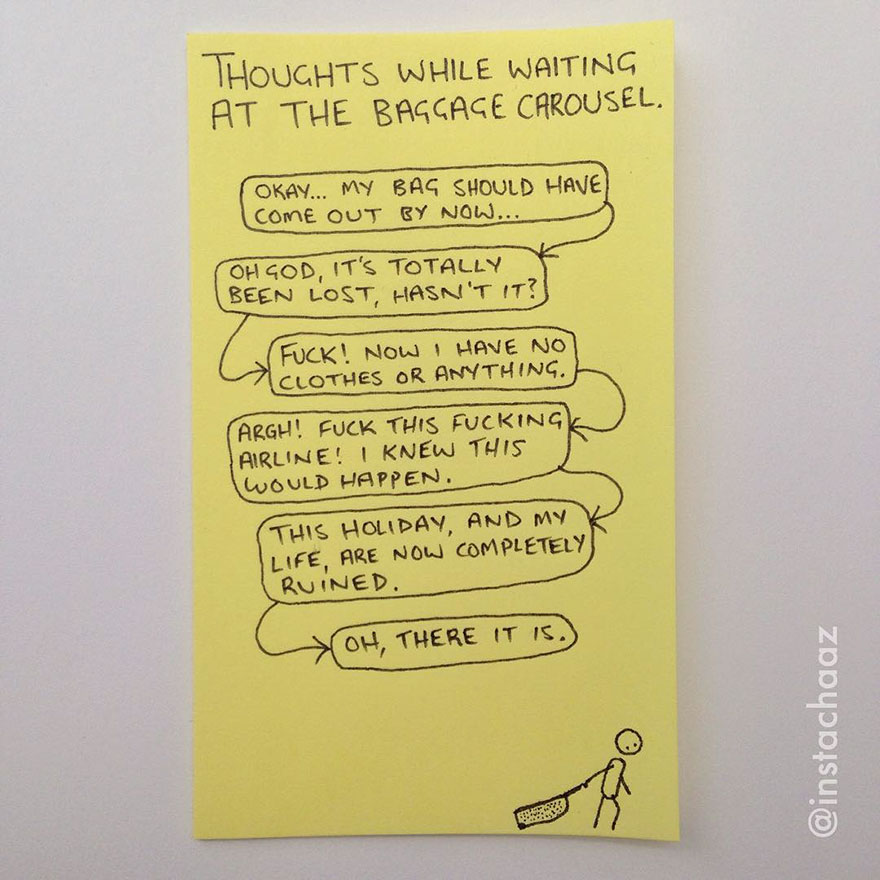 THOUGHTS WHILE WAITING
AT THE BAGGAGE CAROUSEL.
OKAY... MY BAG SHOULD HAVE
COME OUT BY NOW...
OH GOD, IT'S TOTALLY
BEEN LOST, HASN'T IT?
FUCK! NOW I HAVE NO
CLOTHES OR ANYTHING.
ARGH! FUCK THIS FUCKING
AIRLINE! I KNEW THIS
WOULD HAPPEN.
THIS HOLIDAY, AND MY
LIFE, ARE NOW COMPLETELY
RUINED.
OH, THERE IT IS.
@instachaaz